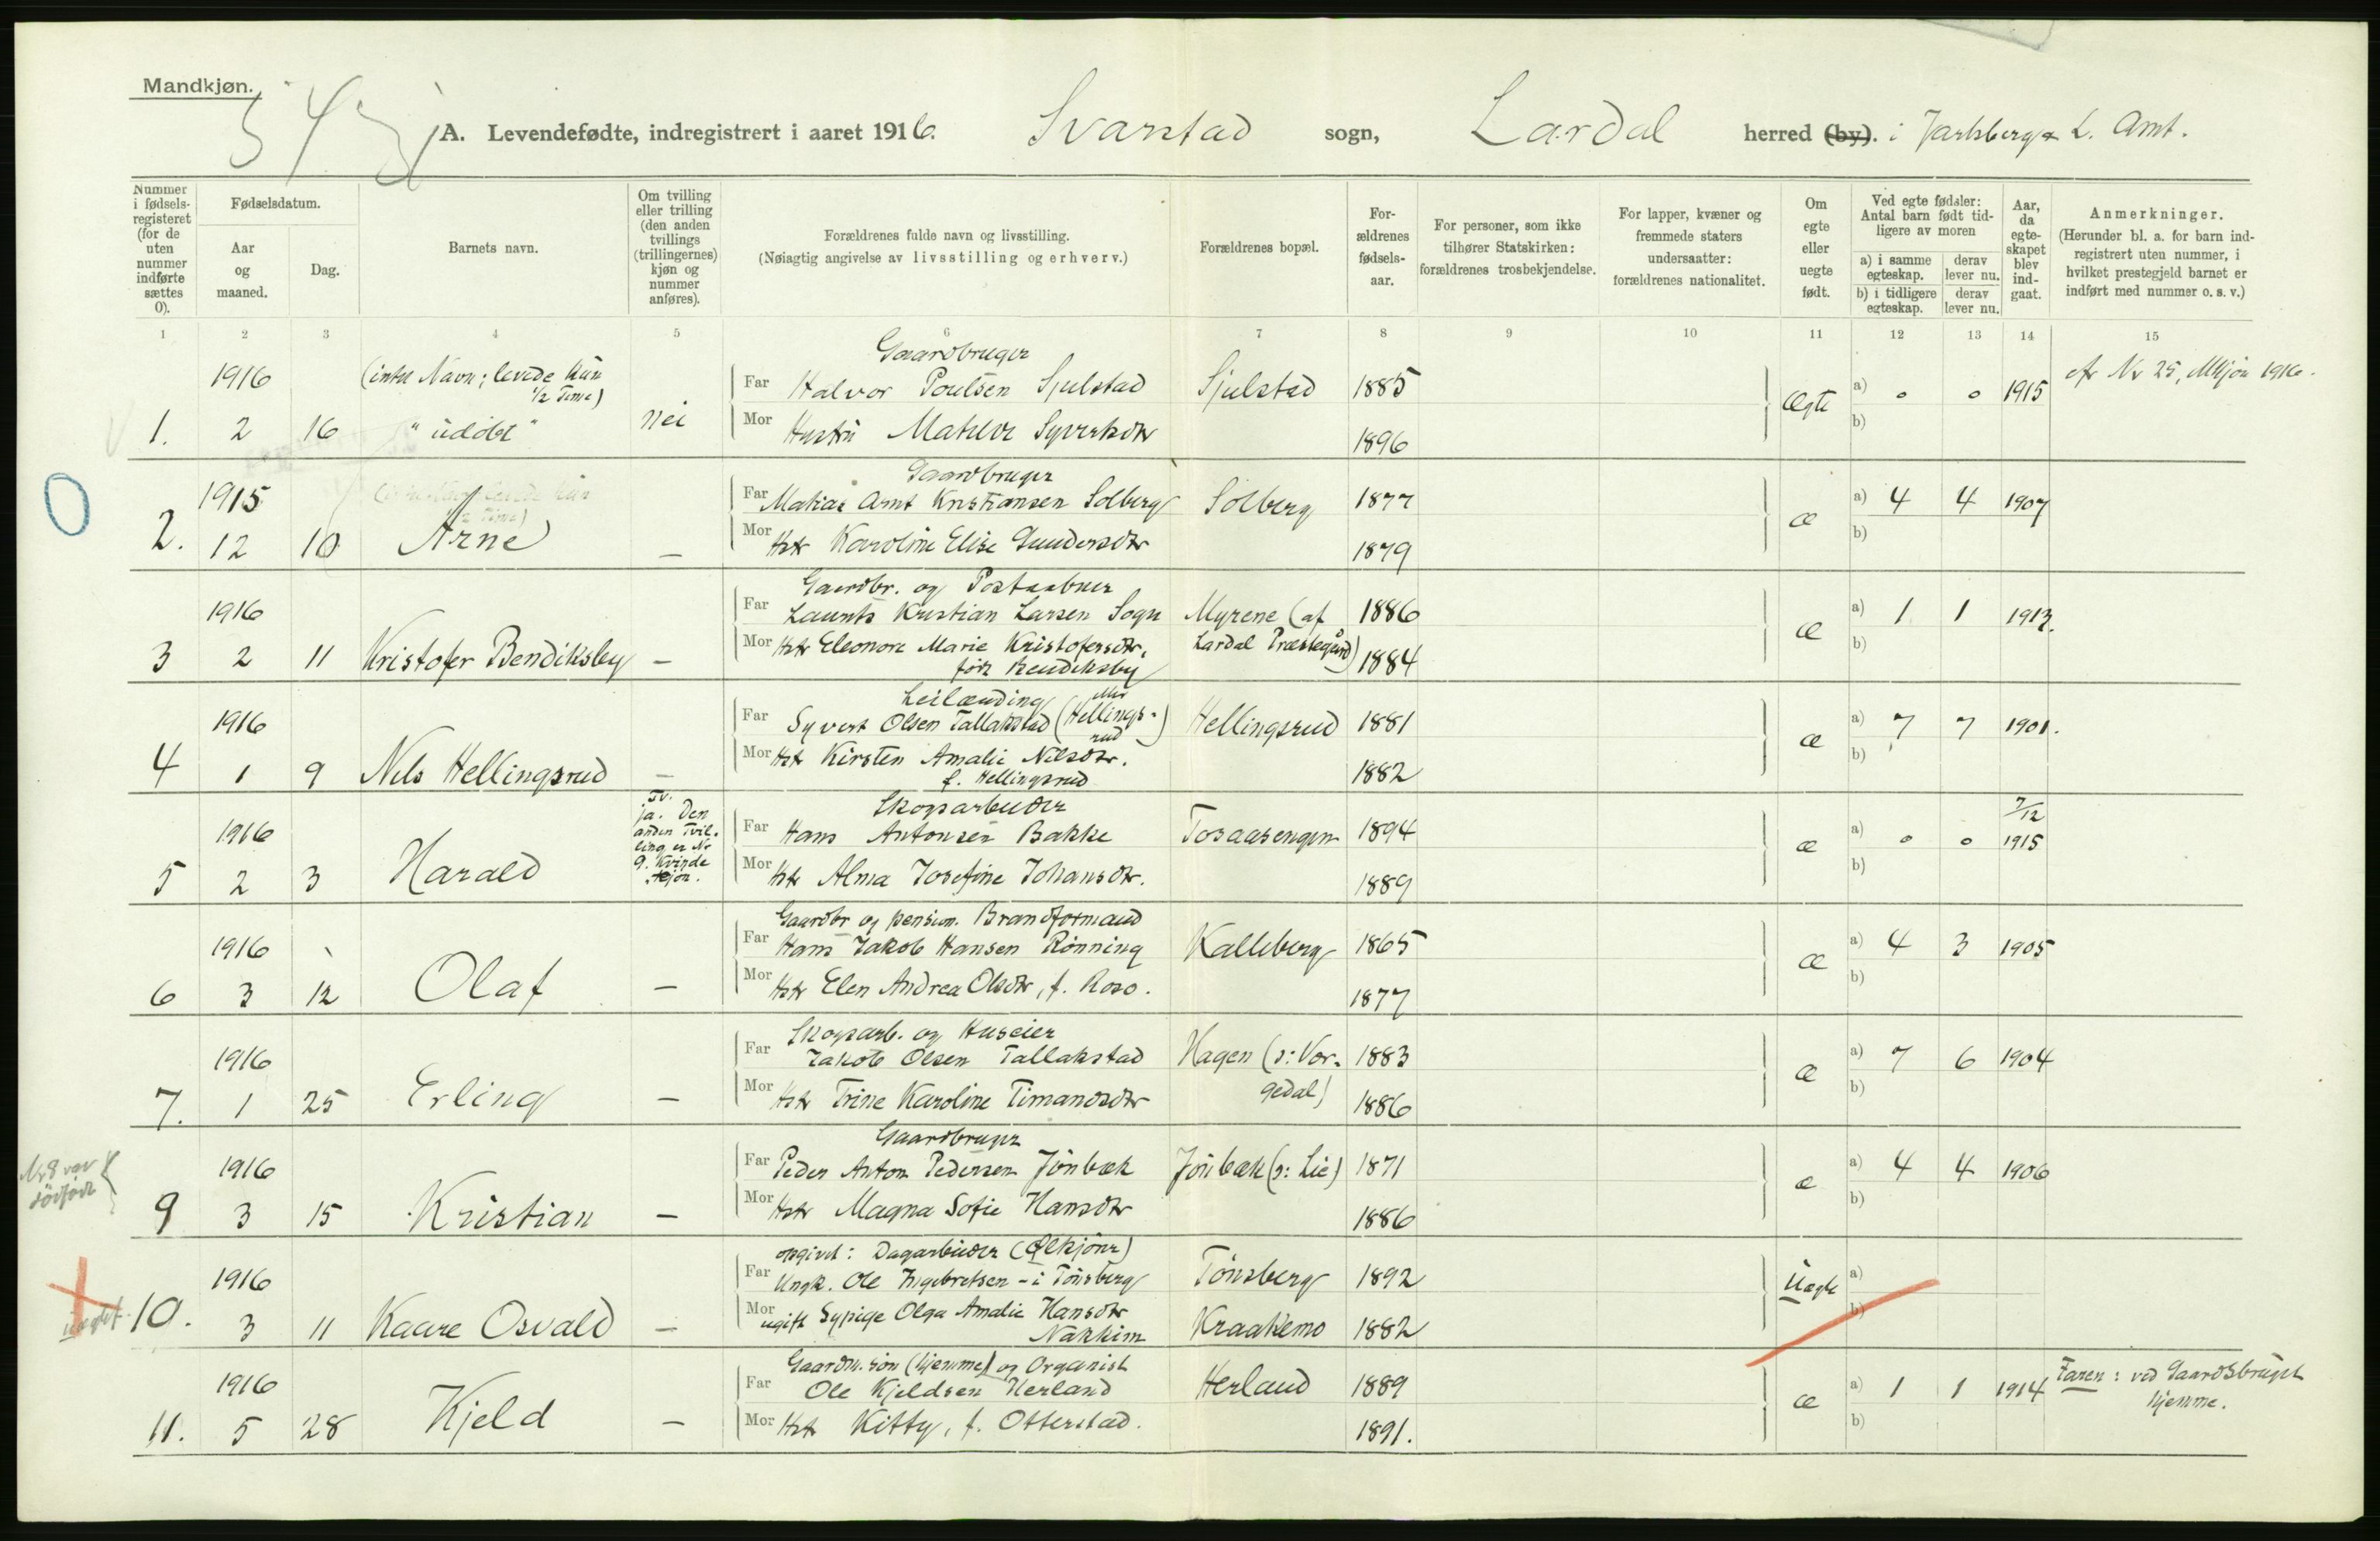 Mandkjøn.
A. Levendefødte, indregistrert i aaret 1916. Svarstad sogn, Lardal herred (by). i Jarlsberg & L. Amt.
Nummer i fødselsregisteret (for de uten nummer indførte sættes 0).
Fødselsdatum.
Aar og maaned.
Dag.
Barnets navn.
Om tvilling eller trilling (den anden tvillings (trillingernes) kjøn og nummer anføres).
Forældrenes fulde navn og livsstilling.
(Nøiagtig angivelse av livsstilling og erhverv.)
Forældrenes bopæl.
Forældrenes fødselsaar.
For personer, som ikke tilhører Statskirken: forældrenes trosbekjendelse.
For lapper, kvæner og fremmede staters undersaatter: forældrenes nationalitet.
Om egte eller uegte født.
Ved egte fødsler: Antal barn født tidligere av moren
a) i samme egteskap. derav lever nu.
b) i tidligere egteskap. derav lever nu.
Aar, da egteskapet blev indgaat.
Anmerkninger.
(Herunder bl. a. for barn indregistrert uten nummer, i hvilket prestegjeld barnet er indført med nummer o. s. v.)
1 2 3 4 5 6 7 8 9 10 11 12 13 14 15
Gaardbruger
1916 (intet Navn; levede kun ½ Time) Far Halvor Poulsen Sjulstad Sjulstad 1885 Ægte a) 0 0 1915 Nr 25, Mkjøn 1916.
1. 2 16 "udöbt" Nei Mor Hustru Mathea Syversdtr 1896 b)
Gaardbruger
1915 Far Matias Arnt Kristiansen Solberg Solberg 1877 æ a) 4 4 1907
2. 12 10 Arne — Mor Hstr Karoline Elise Gundersdtr 1879 b)
Gaardbr. og Postaabner
1916 Far Laurits Kristian Larsen Sogn Myrene (af 1886 æ a) 1 1 1913.
3 2 11 Kristofer Bendiksby — Mor Hstr Eleonore Marie Kristofersdtr, Lardal Præstegård) 1884 b)
født Bendiksby
Leilænding eller
1916 Far Syvert Olsen Tallakstad (Hellingsrud) Hellingsrud 1881 æ a) 7 7 1901.
4 1 9 Nils Hellingsrud — Mor Hstr Kirsten Amalie Nilsdtr. 1882 b)
f. Hellingsrud
Tv. ja. Den anden Tvilling er Nr 9. Kvindekjön.
Skogsarbeider 7/12
1916 Far Hans Antonsen Bakke Tosaasengen 1894 æ a) 0 0 1915
5 2 3 Harald Mor Hstr Alma Josefine Johansdtr. 1889 b)
Gaardbr og pension. Brandformand
1916 Far Hans Jakob Hansen Rönning Kalleberg 1865 æ a) 4 3 1905
6 3 12 Olaf — Mor Hstr Elen Andrea Olsdtr, f. Roso. 1877 b)
Skogsarb. og Huseier
1916 Far Jakob Olsen Tallakstad Hagen (ɔ: Vor- 1883 æ a) 7 6 1904
7. 1 25 Erling — Mor Hstr Trine Karoline Timandsdtr gedal) 1886 b)
Gaardbruger
Nr 8 var dödfödt
1916 Far Peder Anton Pedersen Jönbæk Jönbæk (ɔ: Lie) 1871 æ a) 4 4 1906
9 3 15 Kristian — Mor Hstr Magna Sofie Hansdtr 1886 b)
opgivet: Dagarbeider (Ølkjörer)
1916 Far Ungk. Ole Ingebretsen - i Tönsberg Tönsberg 1892 Uægte a)
uægte 10. 3 11 Kaare Osvald — Mor ugift Sypige Olga Amalie Hansdtr Kraakemo 1882 b)
Nakkim
Gaardm. sön (hjemme) og Organist
1916 Far Ole Kjeldsen Herland Herland 1889 æ a) 1 1 1914 Faren: ved Gaardsbruget hjemme.
11. 5 28 Kjeld — Mor Hstr Kitty, f. Otterstad. 1891. b)